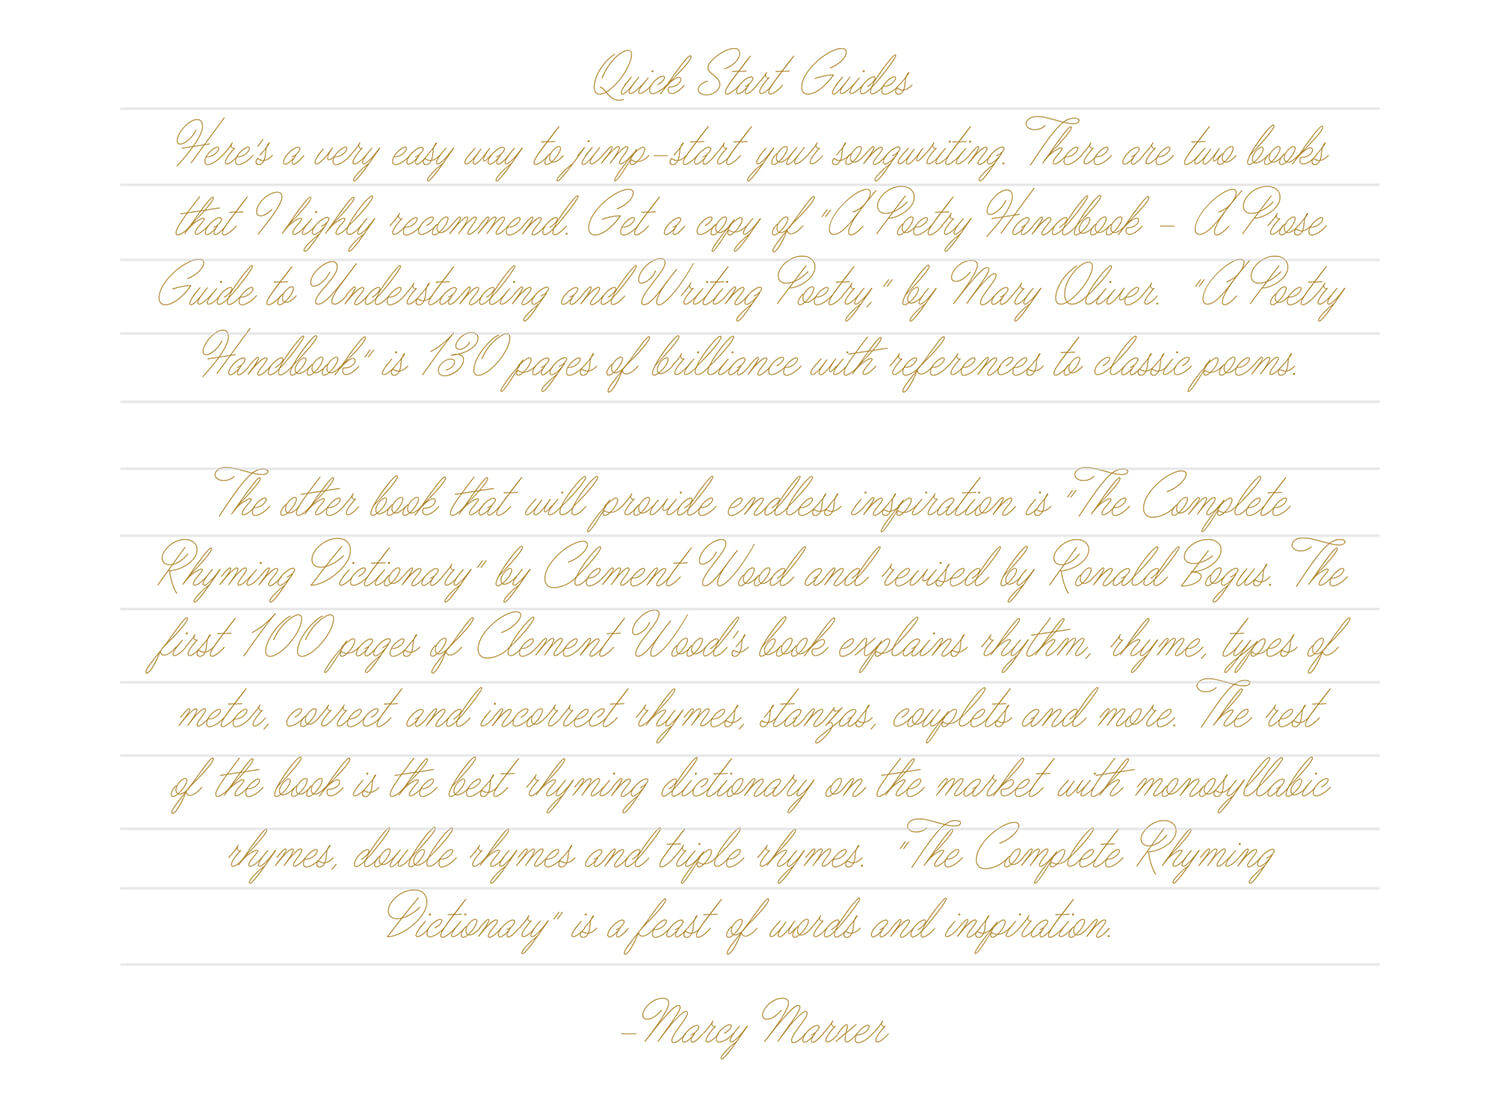 Quick Start Guides
Here's a very easy way to jump-start your songwriting. There are two books
that I highly recommend. Get a copy of "A Poetry Handbook – A Prose
Guide to Understanding and Writing Poetry," by Mary Oliver. "A Poetry
Handbook" is 130 pages of brilliance with references to classic poems.
The other book that will provide endless inspiration is "The Complete
Rhyming Dictionary" by Clement Wood and revised by Ronald Bogus. The
first 100 pages of Clement Wood's book explains rhythm, rhyme, types of
meter, correct and incorrect rhymes, stanzas, couplets and more. The rest
of the book is the best rhyming dictionary on the market with monosyllabic
rhymes, double rhymes and triple rhymes. "The Complete Rhyming
Dictionary" is a feast of words and inspiration.
–Marcy Marxer